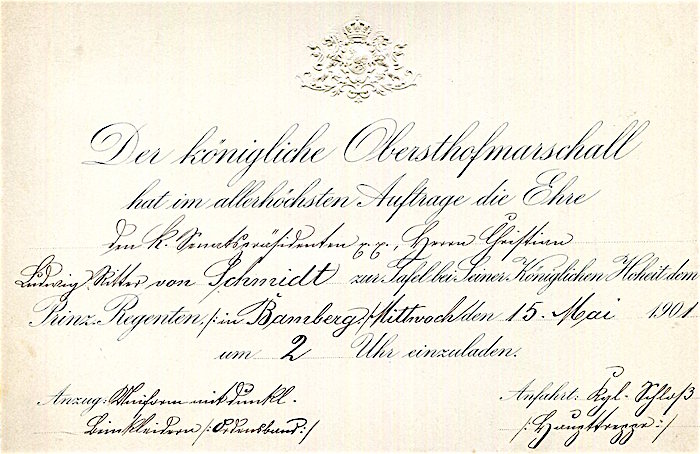 Der königliche Obersthofmarschall
hat im allerhöchsten Auftrage die Ehre
den K. Senatspräsidenten p.p., Herrn Christian
Ludwig Ritter von Schmidt zur Tafel bei Seiner Königlichen Hoheit dem
Prinz-Regenten /: in Bamberg :/ Mittwoch den 15. Mai 1901
um 2 Uhr einzuladen.
Anzug: Uniform mit dunkl.
Beinkleidern /: Ordensband :/
Anfahrt: Kgl. Schloß
/: Haupttreppe :/